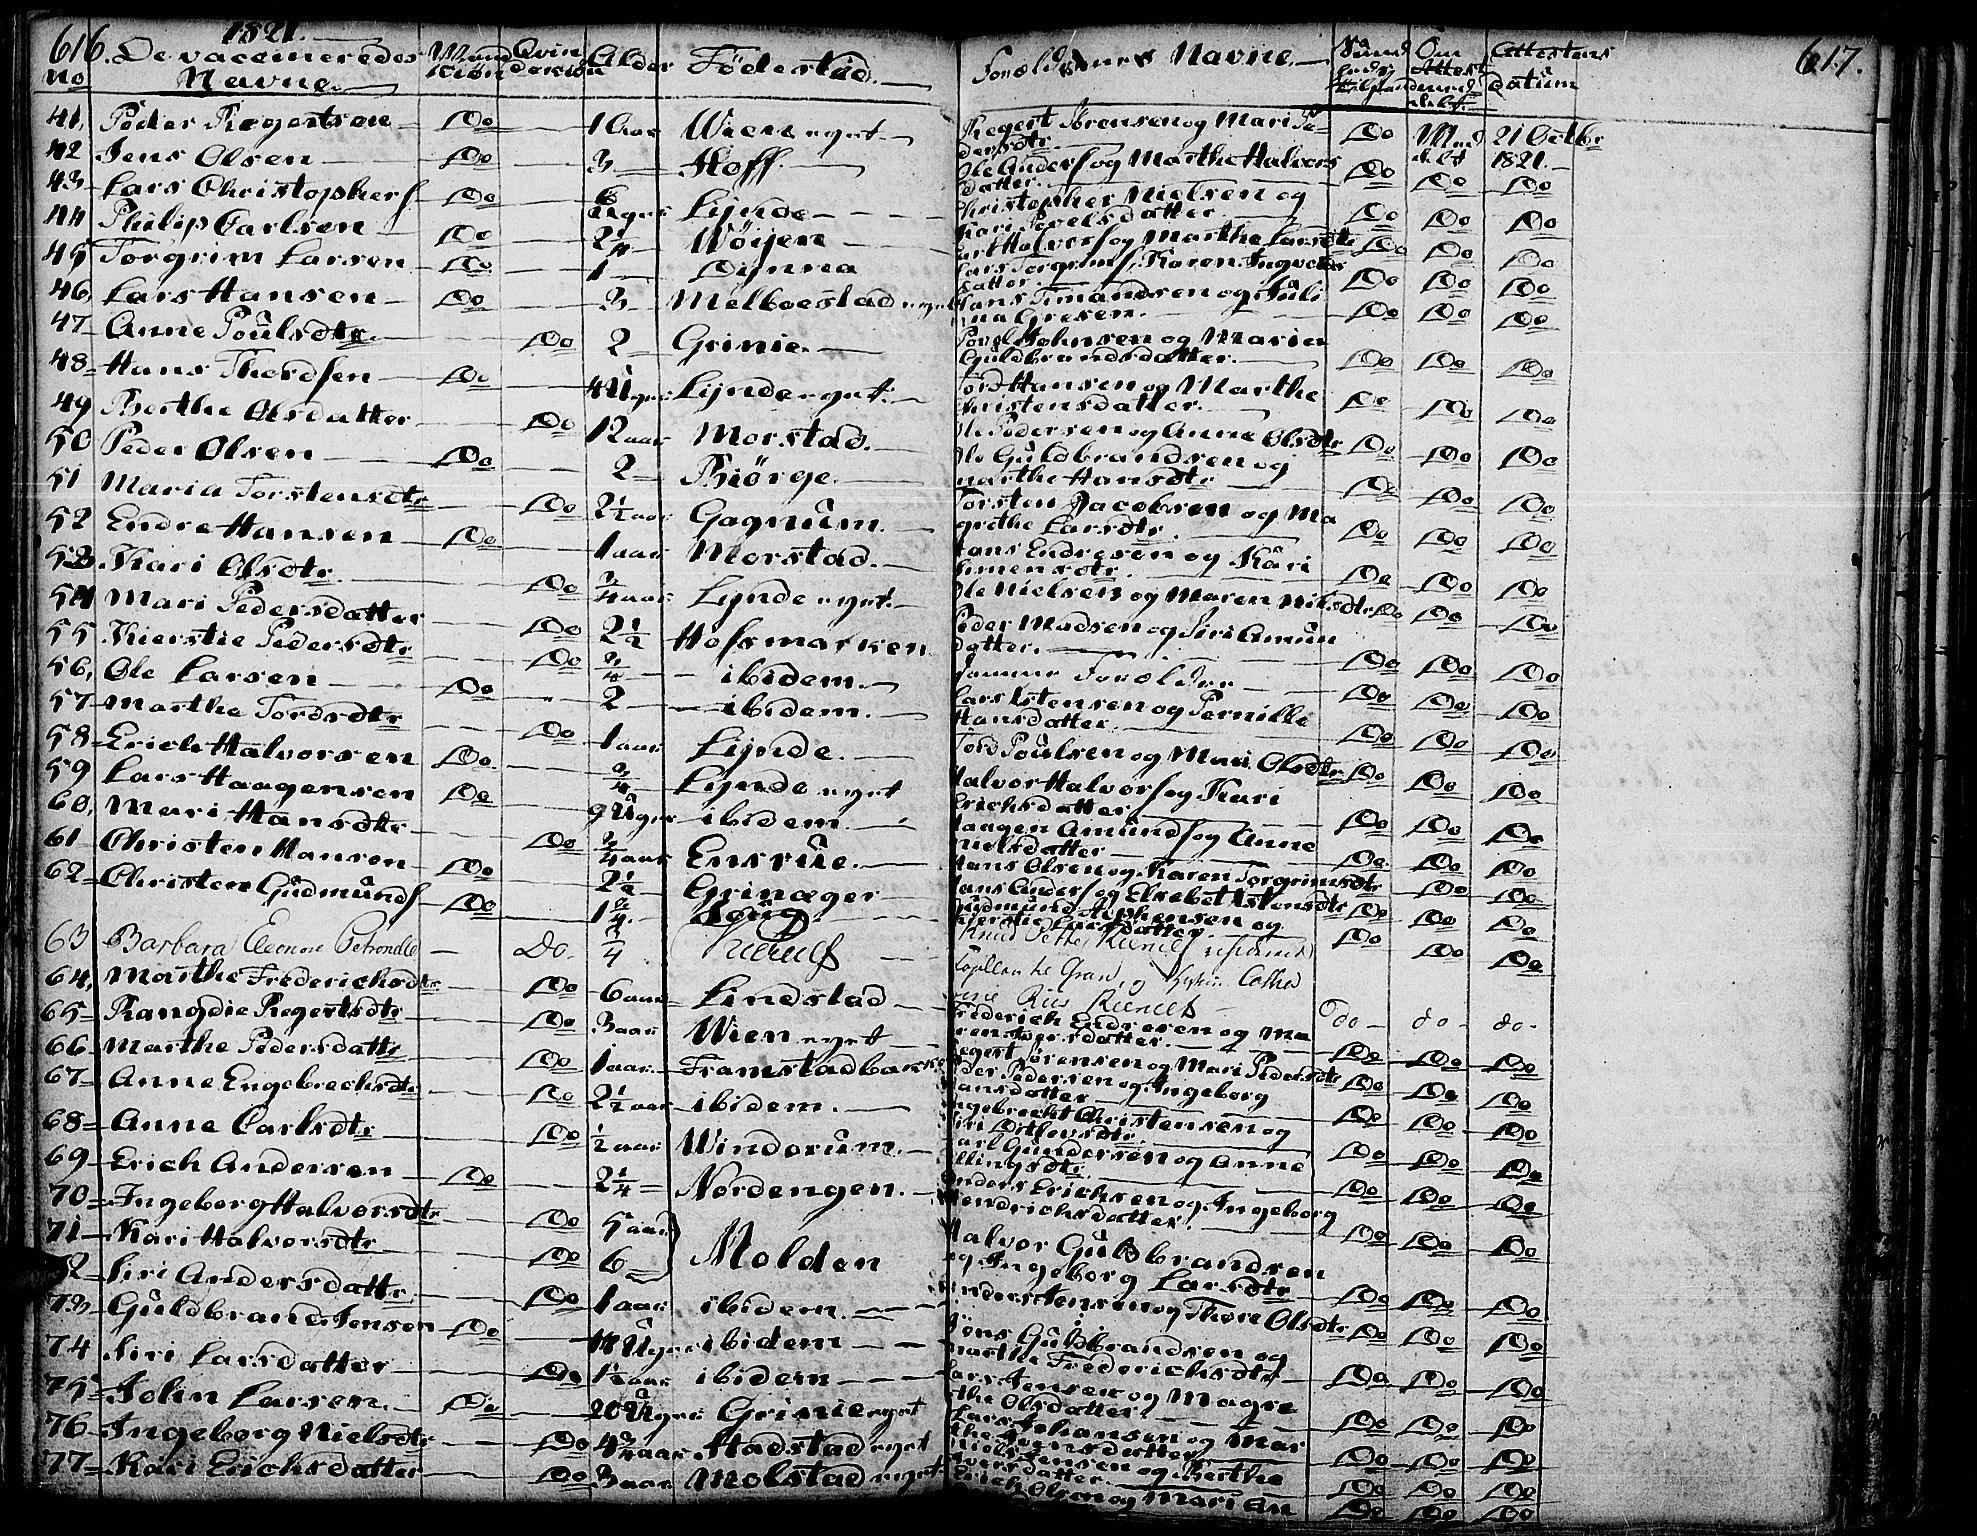 616. 1821. 617.
De vaccineredes Navne. Mand Kiön Qvin dekiön Alder Födestæd. Forældrenes Navne. Attestens datum
no
41, Peder Regertsen Do 1 aar Wien eyet Regert Sörensen og Mari Pedersdtr. Do Med delt 21 Octbr 1821.
42 Jens Olsen Do 3 Hoff. Ole Anders og Marthe Halvorsdatter. Do Do Do
43 Lars Christophers Do 6 Uger Lijnde Christopher Nielsen og Kari Povelsdatter. Do Do Do
44 Philip Carlsen Do 2 1/4 Wöijen Carl Halvors og Marthe Larsdtr Do Do Do
45 Torgrim Larsen Do 1 Dijnna Lars Torgrims, Karen Ingvoldsdatter. Do Do Do
46, Lars Hansen Do 3 Melboestad eyet Hans Simandsen og Juliana Gresen. Do Do Do
47 Anne Poulsdtr. Do 2 Grinie. Povel Johnsen og Marien Guldbrandsdatter. Do Do Do
48 Hans Thordsen Do 4 Uger Lijnde eyet. Tord Hansen og Marthe Christensdatter. Do Do Do
49 Berthe Olsdatter Do 12 aar Morstad. Ole Pedersen og Anne Olsdtr Do Do Do
50 Peder Olsen Do 2 Biörge. Ole Guldbrandsen og Marthe Hansdtr Do Do Do
51 Maria Torstensdtr Do 2 1/2 aar Gagnum. Torsten Jacobsen og Magrethe Larsdtr. Do Do Do
52 Endre Hansen Do 1 aar Morstad. Hans Endresen og Kari Simensdtr. Do Do Do
53 Kari Olsdtr Do 3/4 aar Lijnde eyet. Ole Nielsen og Maren Nilsdtr Do Do Do
54 Mari Pedersdatter Do 2 1/2 Hofsmarken Peder Madsen og Siri Amundatter. Do Do Do
55 Kierstie Pedersdtr Do 3/4 ibidem. Samme Forældre Do Do Do
56, Ole Larsen Do 2 ibidem. Lars Istensen og Pernille Hansdatter Do Do Do
57 Marthe Tordsdtr Do 1 aar Lijnde. Tord Poulsen og Mari Olsdtr Do Do Do
58 Erich Halvorsen Do 3/4 Lijnde eyet Halvor Halvors og Kari Erichsdatter Do Do Do
59 Lars Haagensen Do 9 Uger ibidem Haagen Amunds og Anne Nielsdatter Do Do Do
60, Mari Hansdtr Do 3/4 aar Ensrue. Hans Olsen og Karen Torgrimsdtr Do Do Do
61 Christen Hansen Do 2 1/2 Grinager Hans Anders og Elsebet Istensdtr Do Do Do
62 Christen Gudmunds Do 1 3/4. Gudmund Alphensen og Kierstie Larsdatter Do Do Do
63 Barbara Eleonore Petronelle Do. 3/4 Kierulf Knud Petter Kierulf residerend Capellan til Gran, og Cathrine Riis Kierulf do do do
64, Marthe Frederichsdtr Do 6 aar Lindstad Frederich Endresen og Maren Iversdatter. Do Do Do
65 Rangdie Regertsdtr Do 3 aar Wien eyet Regert Sörensen og Mari Pedersdtr Do Do Do
66 Marthe Pedersdattr Do 1 aar Framstadbakke Peder Pedersen og Ingeborg Hansdatter Do Do Do
67 Anne Engebrechsdtr Do 2 1/2 aar ibidem. Ingebrecht Christensen og Siri Ditlevsdtr. Do Do Do
68 Anne Carlsdtr Do 1/2 aar Windorum. Carl Gundersen og Anne Ellingsdtr Do Do Do
69 Erich Andersen Do 2 1/4 Nordengen. Anders Erichsen og Ingeborg Hendrichsdatter. Do Do Do
70 Ingeborg Halvorsdtr Do 5 aar Molden Halvor Guldbrandsen og Ingeborg Larsdtr Do Do Do
71 Kari Halvorsdtr Do 6
72 Siri Andersdattr Do 1 aar ibidem. Anders Jensen og Thore Olsdtr Do Do Do
73 Guldbrand Jensen Do 14 Uger ibidem Jens Guldbrandsen og Marthe Frederichsdtr Do Do Do
74 Siri Larsdatter Do 1 1/2 aar ibidem Lars Jensen og Magrethe Olsdatter. Do Do Do
75 John Larsen. Do 20 Uger Grinie eyet Lars Johansen og Marthe Jensdatter Do Do Do
76 Ingeborg Nielsdtr Do 4 3/4 aar Stadstad eyet Niels Jensen og Berthe Iversdatter. Do Do Do
77 Kari Erichsdatter Do 3 aar Molstad eyet Erich Olsen og Mari An Do Do Do